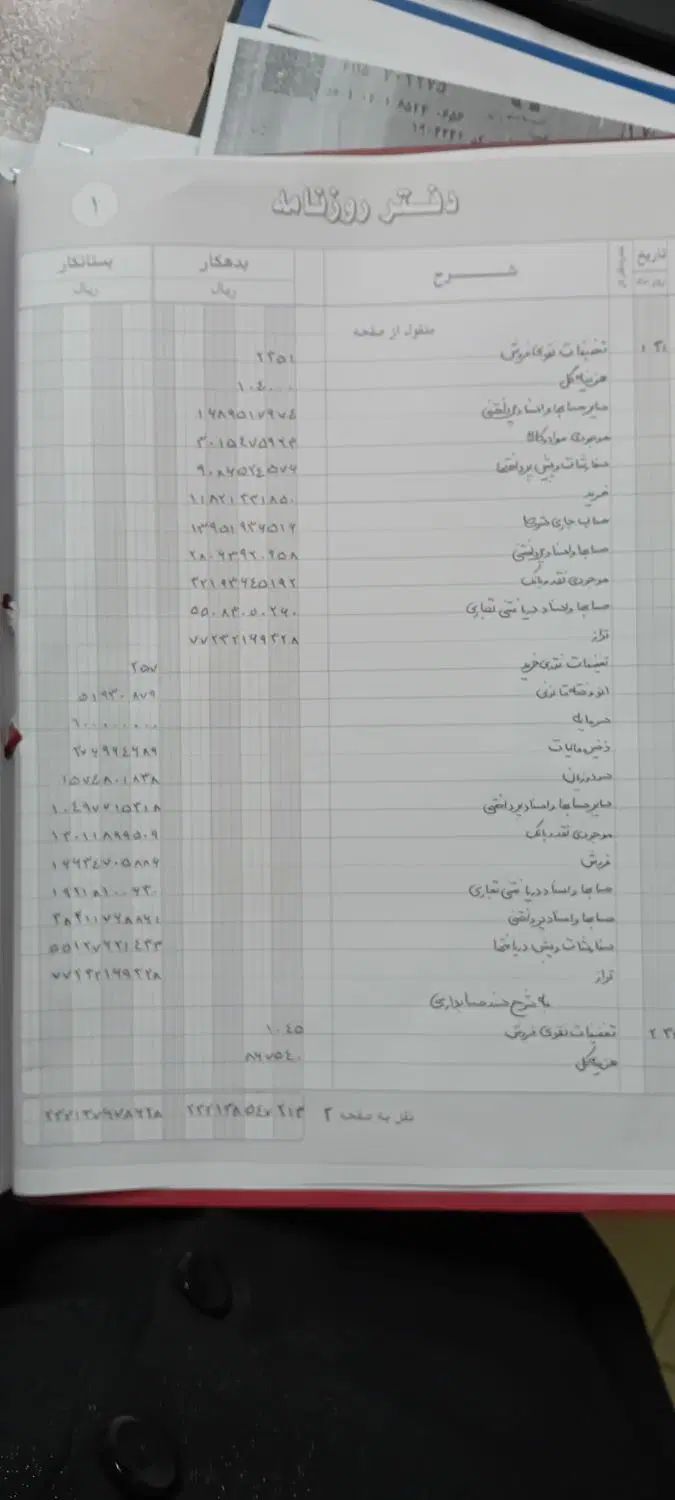 دفتر روزنامه ۱
تاریخ شرح بدهکار بستانکار
ریال ریال
منقول از صفحه
تخفیفات نقدی فروش ۲۳۵۱
هزینه کل ۱۰۴۰۰۰
سایر حسابها و اسناد پرداختنی ۱۶۸۹۵۱۷۹۷۴
موجودی مواد و کالا
سفارشات و پیش پرداختها ۹۰۸۷۵۲۴۵۷۶
خرید ۱۱۸۲۱۳۳۱۸۵۰
حساب جاری شرکا ۱۳۹۵۱۹۳۷۵۱۶
حسابها و اسناد پرداختنی ۲۸۰۷۳۹۲۰۲۵۸
موجودی نقد و بانک ۳۲۱۹۳۶۴۵۱۹۲
حسابها و اسناد دریافتنی تجاری ۵۵۰۸۳۰۵۰۲۶۰
تراز ۷۷۲۳۲۱۶۹۳۲۸
تخفیفات نقدی خرید ۲۵۷
اندوخته قانونی ۵۱۹۳۰۸۷۹
سرمایه
ذخیره مالیات
سود و زیان ۱۵۷۴۸۰۱۸۳۸
سایر حسابها و اسناد پرداختنی ۱۰۴۹۷۷۱۵۲۱۸
موجودی نقد و بانک ۱۳۰۱۱۸۹۹۵۰۹
فروش ۱۶۶۳۴۷۰۵۸۸۶
حسابها و اسناد دریافتنی تجاری
حسابها و اسناد پرداختنی
سفارشات و پیش دریافتها ۵۵۱۲۷۶۲۱۴۳۳
تراز ۷۷۲۳۲۱۶۹۳۲۸
به شرح سند حسابداری
تخفیفات نقدی فروش ۱۰۴۵
هزینه کل ۸۶۷۵۴۰
نقل به صفحه ۲